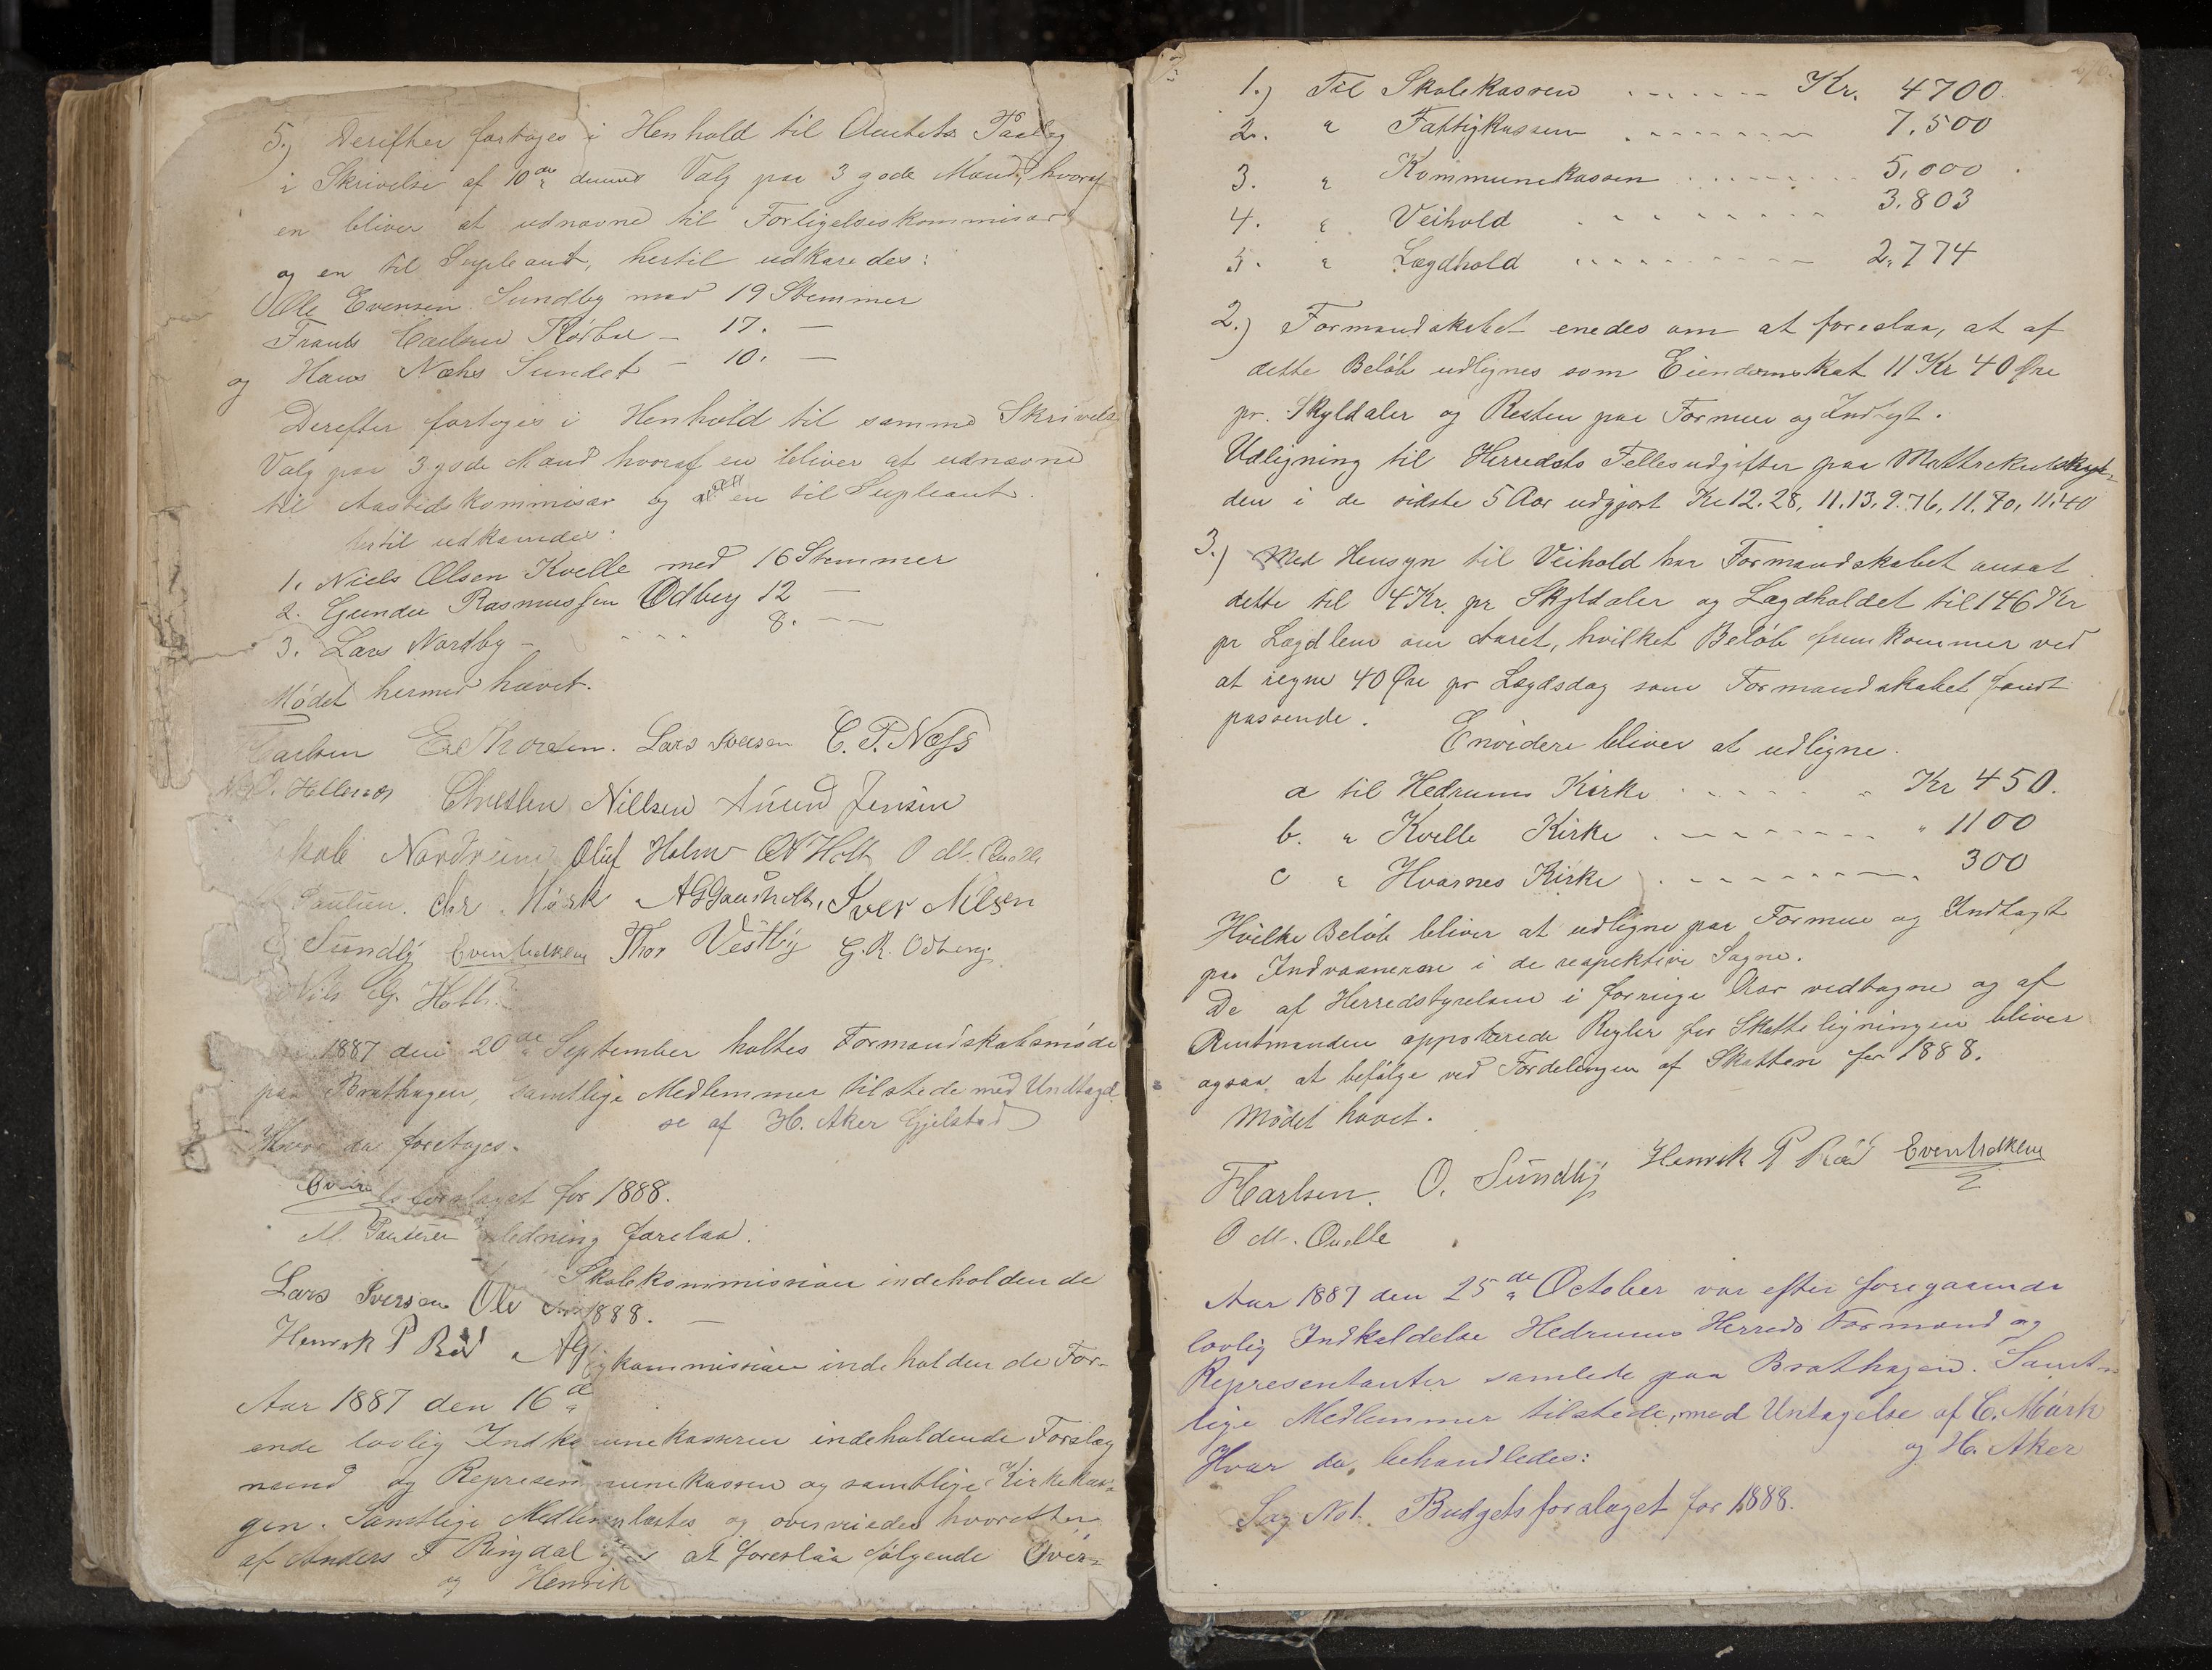 5.) Derefter foretoges i Henhold til Amtets Paalæg
i Skrivelse af 10de dennes Valg paa 3 gode Mænd, hvoraf
en bliver at udnævne til Forligelseskommisær
og en til Supleant, hertil udkaredes:
Ole Evensen Sundby med 19 Stemmer
Frants Carlsen Rødbøl – 17. —
og Hans Næhs Sundet – 10. —
Derefter foretoges i Henhold til samme Skrivelse
Valg paa 3 gode Mænd hvoraf en bliver at udnævne
til Aastedskommisær og en til Supleant.
hertil udkaaredes:
1. Niels Olsen Kvelle med 16 Stemmer
2. Gunder Rasmussen Odberg 12 —
3. Lars Nordby – 8. —
Mødet hermed hævet.
Carlsen E. Thoresen. Lars Iversen C. P. Næss
Christen Nillsen Anund Jensen
Nordrum Oluf Holm O M. Quelle
M Paulsen. Chr. Mørk AGGaasholt, Iver Nilsen
O Sundby Thor Vestby G. R. Odberg
Nils G. Holt.
1887 den 20de September holtes Formandskabsmøde
paa Brathagen, samtlige Medlemmer tilstede med Undtagel
se af H. Aker Gjelstad
Hvor da foretoges.
forslaget for 1888.
M. Paulsen ledning forelaa.
Skolekommission indeholdende
Lars Iversen Ole 1888. —
Henrik P Rød AG gkommission indeholdende For-
Aar 1887 den 16de
ende lovlig Indka unekasserer indeholdende Forslag
mænd og Represen munekassen og samtlige Kirkekas-
gen. Samtlige Medlem læstes og overveiedes hvorefter
af Anders F Ringdal at foreslaa følgende Over-
og Henrik
1.) Til Skolekassen ....... Kr. 4700.
2. " Fattigkassen ........ 7.500
3. " Kommunekassen ........ 5,000.
4. " Veihold ........ 3.803
5. " Lægdhold ......... 2.774
2.) Formandskabet enedes om at foreslaa, at af
dette Beløb udlignes som Eiendomsskat 11 Kr 40 Øre
pr. Skyldaler og Resten paa Formue og Indtægt.
Udligning til Herredets Fellesudgifter paa Mattrekulskyl-
den i de sidste 5 Aar udgjort Kr 12.28, 11.13, 9.76, 11.70, 11.40
3.) Med Hensyn til Veihold har Formandskabet ansat
dette til 4 Kr. pr Skyldaler og Lægdholdet til 146 Kr
pr Lægdlem om Aaret, hvilket Beløb fremkommer ved
at regne 40 Øre pr Lægdsdag som Formandskabet fandt
passende. Envidere bliver at udligne.
a til Hedrums Kirke ..... Kr 450.
b. " Kvelle Kirke ........ " 1100
c " Hvarnes Kirke ......... 300
Hvilke Beløb bliver at udligne paa Formue og Indtægt
paa Indvaanerne i de respektive Sogne.
De af Herredstyrelsen i forrige Aar vedtagne og af
Amtmanden approberede Regler for Skatteligningen bliver
ogsaa at befølge ved Fordelingen af Skatten for 1888.
Mødet hævet.
FCarlsen. O. Sundby Henrik P Rød
O M. Quelle
Aar 1887 den 25de October var efter foregaaende
lovlig Indkaldelse Hedrums Herreds Formænd og
Representanter samlede paa Brathagen. Samt-
lige Medlemmer tilstede, med Untagelse af C. Mørk
og H. Aker
Hvor da behandledes:
Sag No 1. Budgetsforslaget for 1888.